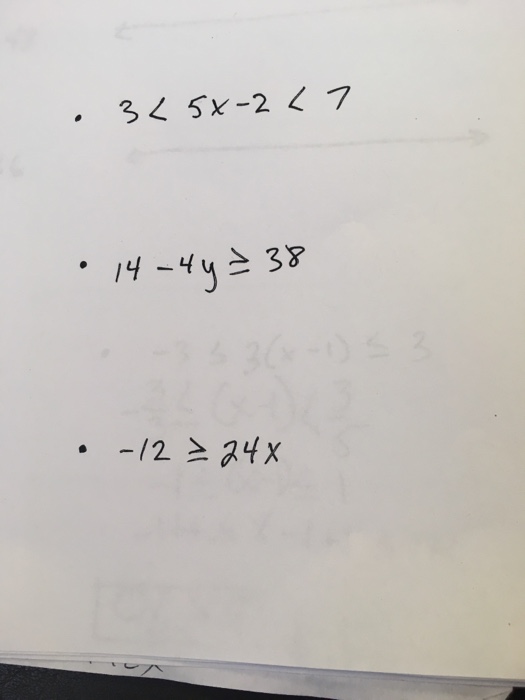 • 3 < 5x-2 < 7
• 14 - 4y ≥ 38
• -12 ≥ 24x